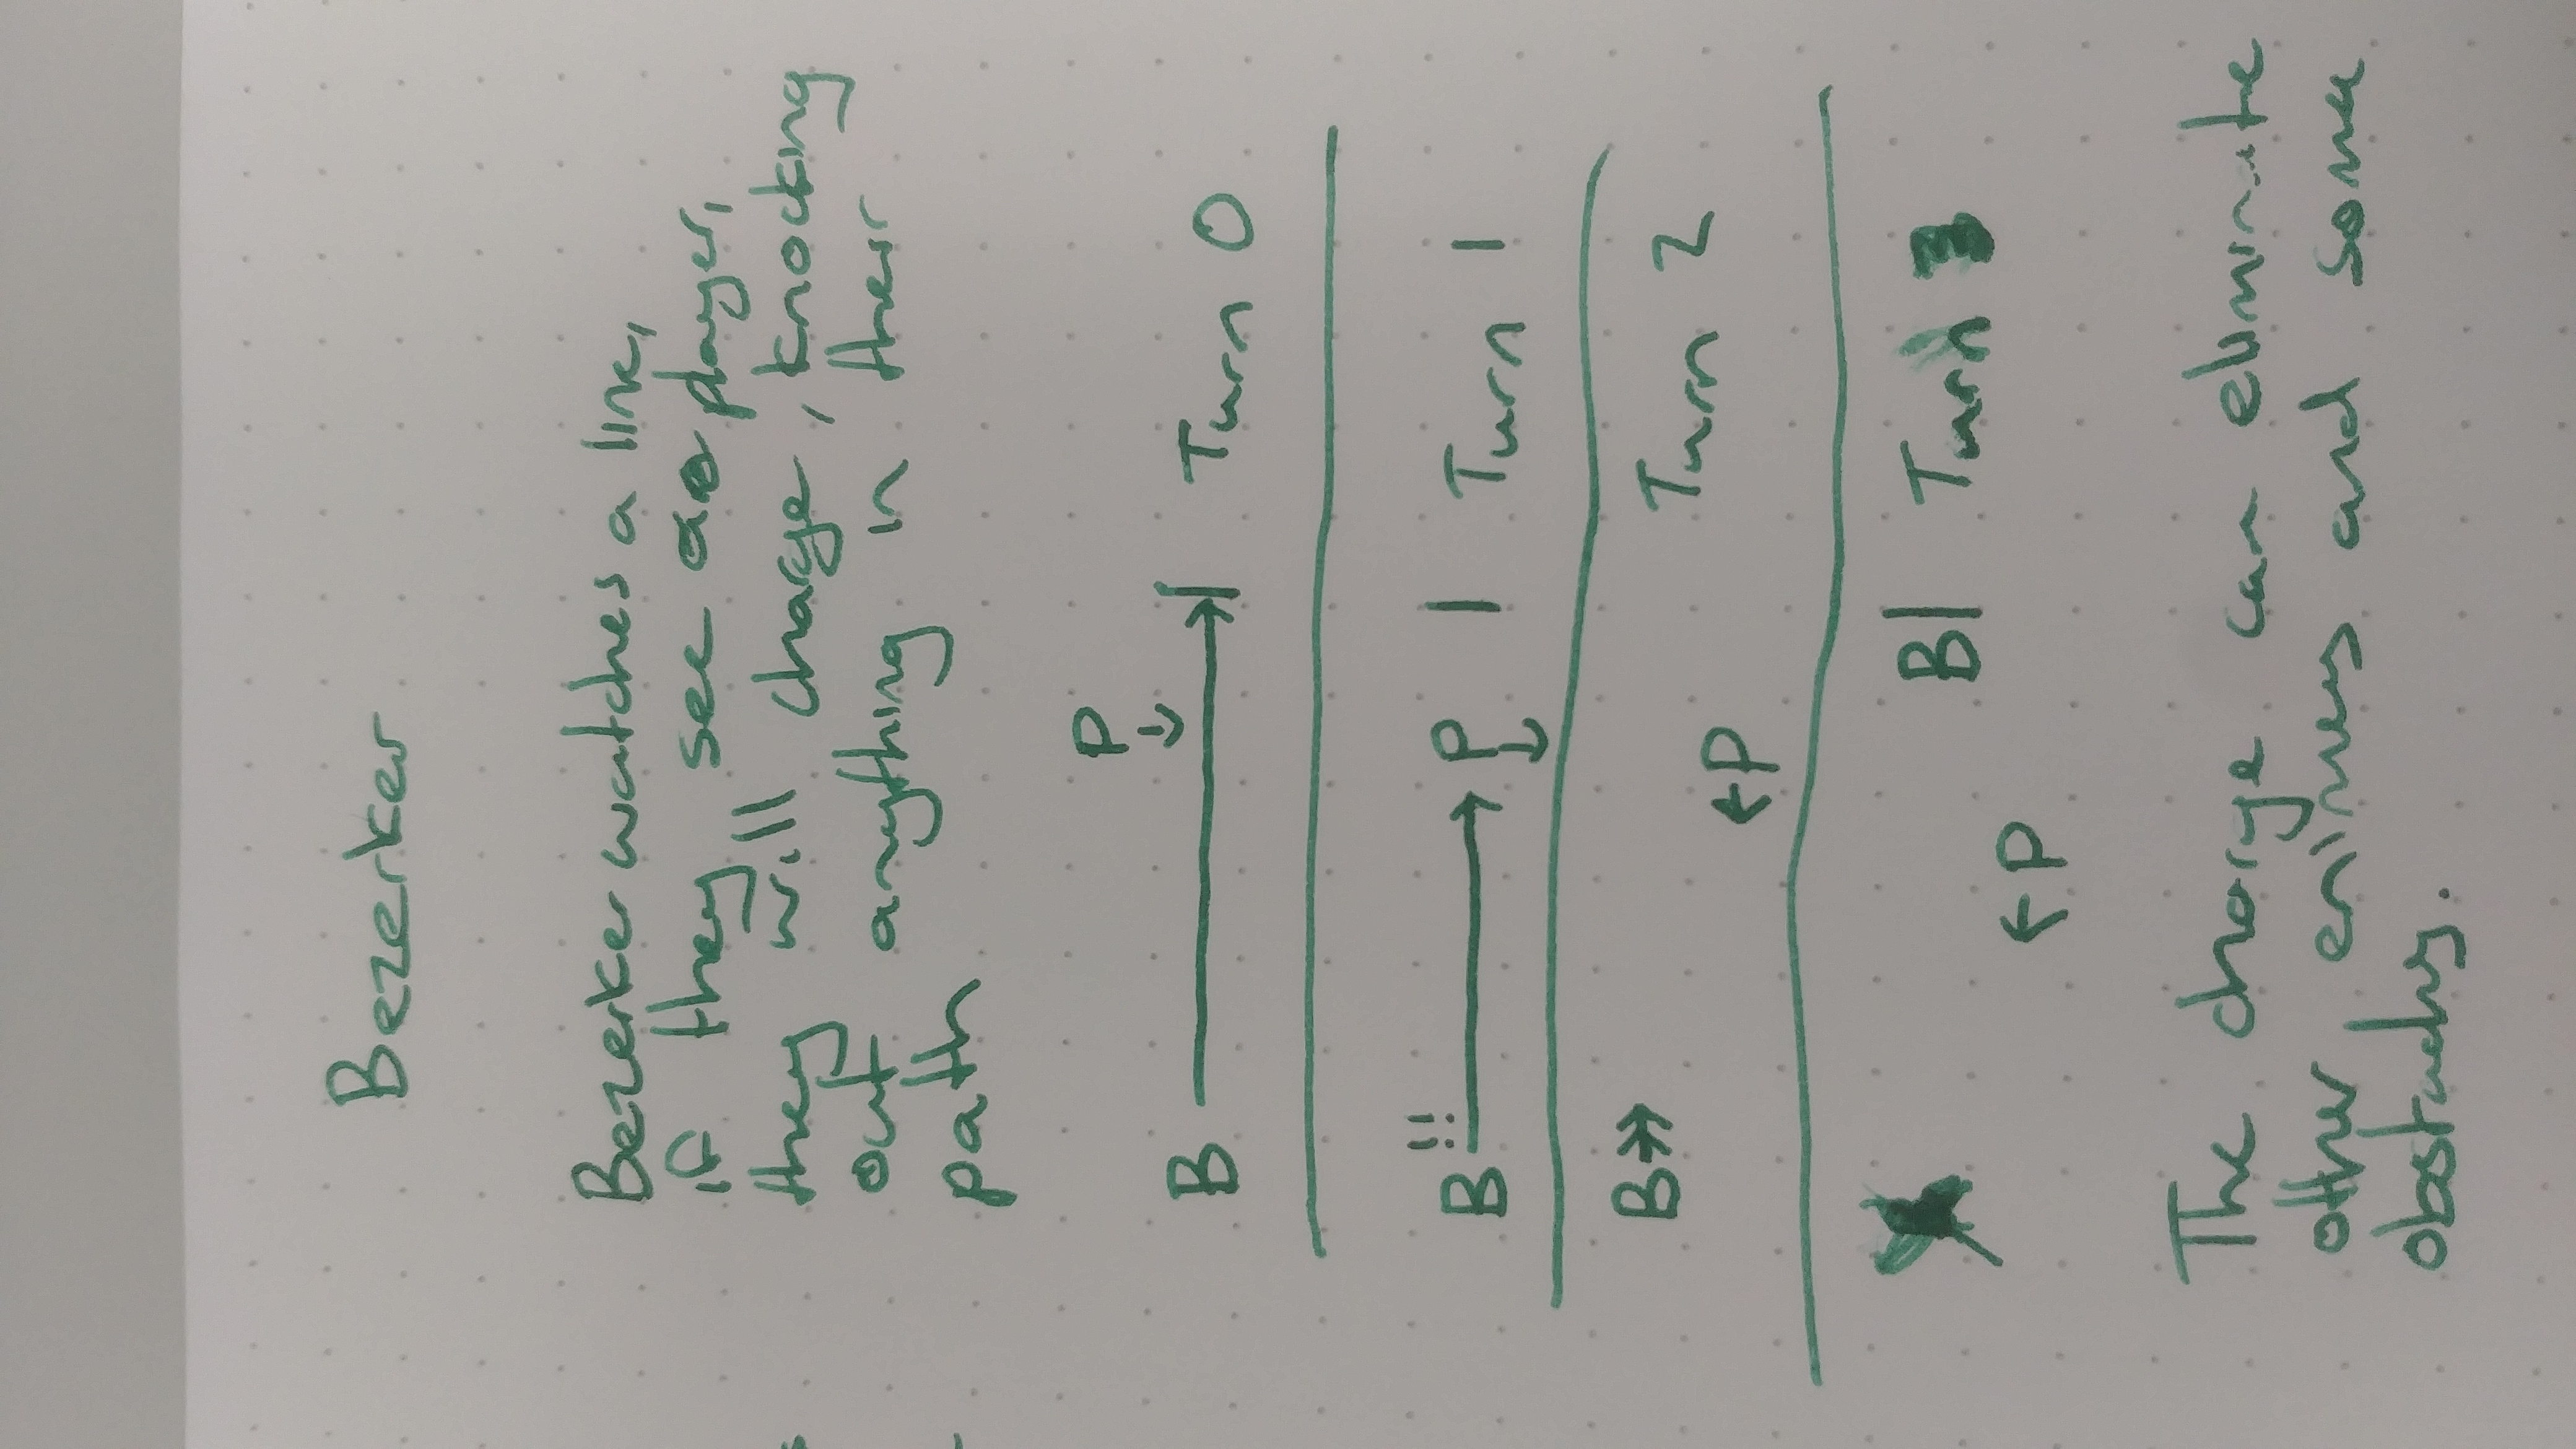 Bezerker
Bezerker watches a line,
if they see a player,
they will charge, knocking
out anything in their
path
P
B Turn 0
!!
B P Turn 1
B Turn 2
P
B Turn 3
P
The charge can eliminate
other enimies and some
obstacles.